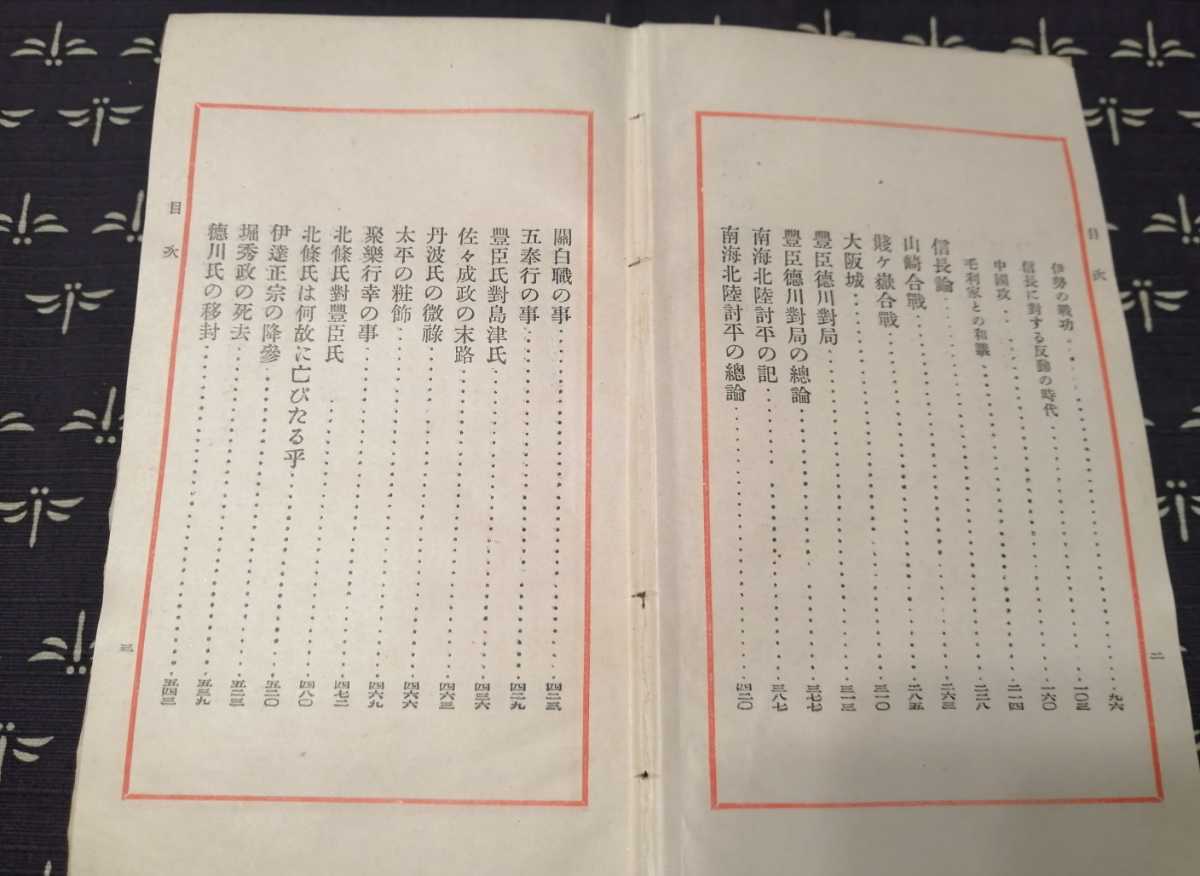 目次
伊勢の戰功……九六
信長に對する反動の時代……一〇三
中國攻……一六〇
毛利家との和議……二一四
信長論……二二八
山崎合戰……二六三
賤ヶ嶽合戰……二八五
大阪城……三一〇
豐臣德川對局……三一三
豐臣德川對局の總論……三七七
南海北陸討平の記……三八七
南海北陸討平の總論……四二〇
二
關白職の事……四二三
五奉行の事……四二九
豐臣氏對島津氏……四三六
佐々成政の末路……四六三
丹波氏の微祿……四六六
太平の粧飾……四六九
聚樂行幸の事……四七二
北條氏對豐臣氏……四八〇
北條氏は何故に亡びたる乎……五二〇
伊達正宗の降參……五二三
堀秀政の死去……五三九
德川氏の移封……五四三
目次
三